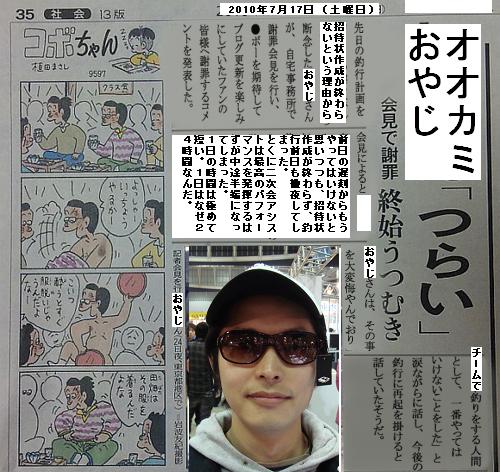 35 社会 13版
2010年7月17日（土曜日）
コボちゃん
植田まさし
9597
クラス会
オオカミ
おやじ
「つらい」
会見で謝罪
終始うつむき
先日の釣行計画を
招待状作成が終わら
ないという理由から
断念したおやじさん
が、自宅事務所で
謝罪会見を行い、
●ボーを期待して
ブログ更新を楽しみ
にしていたファンの
皆様へ謝罪するコメ
ントを発表した。
会見によると
前日の遅刻からもう
やってはいけないと
思いつつも、招待状
作成が終わらず、釣
行前日も徹夜してし
まった。
とくに二次会アシス
トは最高のパフォー
マンスを発揮するは
ずが中途半端になっ
てしまった。
1日の時間は極めて
短い。1日はなぜ2
4時間なんだ。
おやじさんは、その事
を大変悔やんでおり
チームで釣りをする人間
として、一番やっては
いけないことをした」と
涙ながらに話し、今後の
釣行に再起を掛けると
話していたそうだ。
記者会見を行うおやじ
さん＝24日夜、東京都港区で、岩波友紀撮影